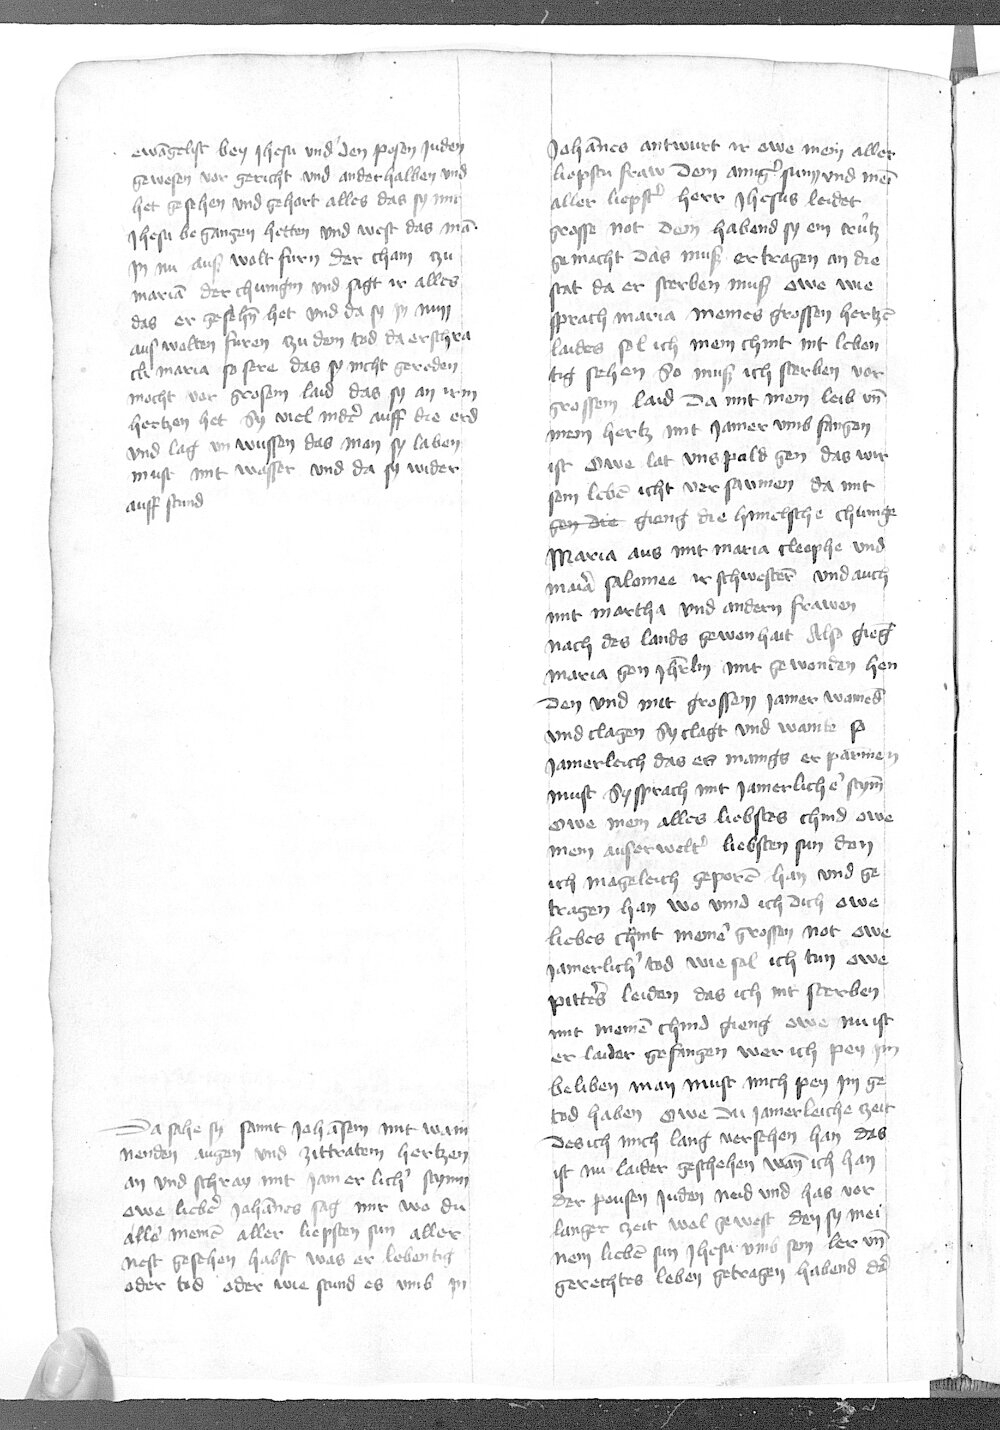 ewangelist bey Jhesu vnd den posen Juden
gewesen vor gericht vnd anderhalben vnd
het gesehen vnd gehort alles das sy mit
Jhesu begangen hetten vnd west das mā
in nu auß wolt furn der cham zu
mariā der chunigin vnd sagt ir alles
das er gesehn̄ het vnd da sy in nun
aus wolten furen zu dem tod da erschra
ck maria so sere das sy nicht gereden
mocht vor grosem laid das sy an irm
hertzen het Sy viel nid̓ auff die erd
vnd lag vnwussen das man sy laben
must mit wasser vnd da sy wider
auff stund
Da sahe sy sannt Johāsem mit wain
nenden augen vnd zittratem hertzen
an vnd schray mit Jamerlich̓ stymm
owe lieb̓ Johānes sag mir wo du
alle meinē aller liepsten sun aller
nest gesehen habst was er lebentig
oder tod oder wie stund es vmb in
Johānes antwurt ir owe mein aller
liepstu fraw Dein ainig̓ sun vnd mei
aller liepst̓ herr Jhesus leidet
grosse not Dem habend sy ein crutz
gemacht Das muß er tragen an die
stat da er sterben muß Owe wie
sprach maria meines grossen hertzē
laides sol ich mein chint nit leben
tig sehen So muß ich sterben vor
grossem laid Da mit mein leib vn̄
mein hertz mit Jamer vmbfangen
ist Owe lat vns pald gen das wir
sein lebē icht versaumen da mit
gen die gieng die himelsche chunige
Maria aus mit maria cleophe vnd
maria salomee ir schwesterē vnd auch
mit martha vnd andern frawen
nach des lands gewonhait Also gieng
maria gen Jhrlm mit gewonden hen
den vnd mit grossem Jamer wainēd
vnd clagen Sy clagt vnd wainte so
Jamerleich das es mainigs erparmen
must Sy sprach mit Jamerliche̓ stym̄
Owe mein alles liebstes chind owe
mein auserwelt̓ liebsten sun den
ich mageleich geporē han vnd ge
tragen han wo vind ich Dich owe
liebes chint meine̓ grossen not owe
Jamerlich̓ tod wie sol ich tun owe
pitters leiden das ich nit sterben
mit meinē chind gieng owe nu ist
er laider gefangen wer ich pey im
beliben man must mich pey im ge
tod haben Owe Du Jamerleiche zeit
Des ich mich lang versehen han das
ist nu laider geschehen wan̄ ich han
der posen Juden neid vnd has vor
langer zeit wol gewest den sy mei
nem liebē sun Jhesu vmb sein ler vn̄
gerechtes leben getragen habend da